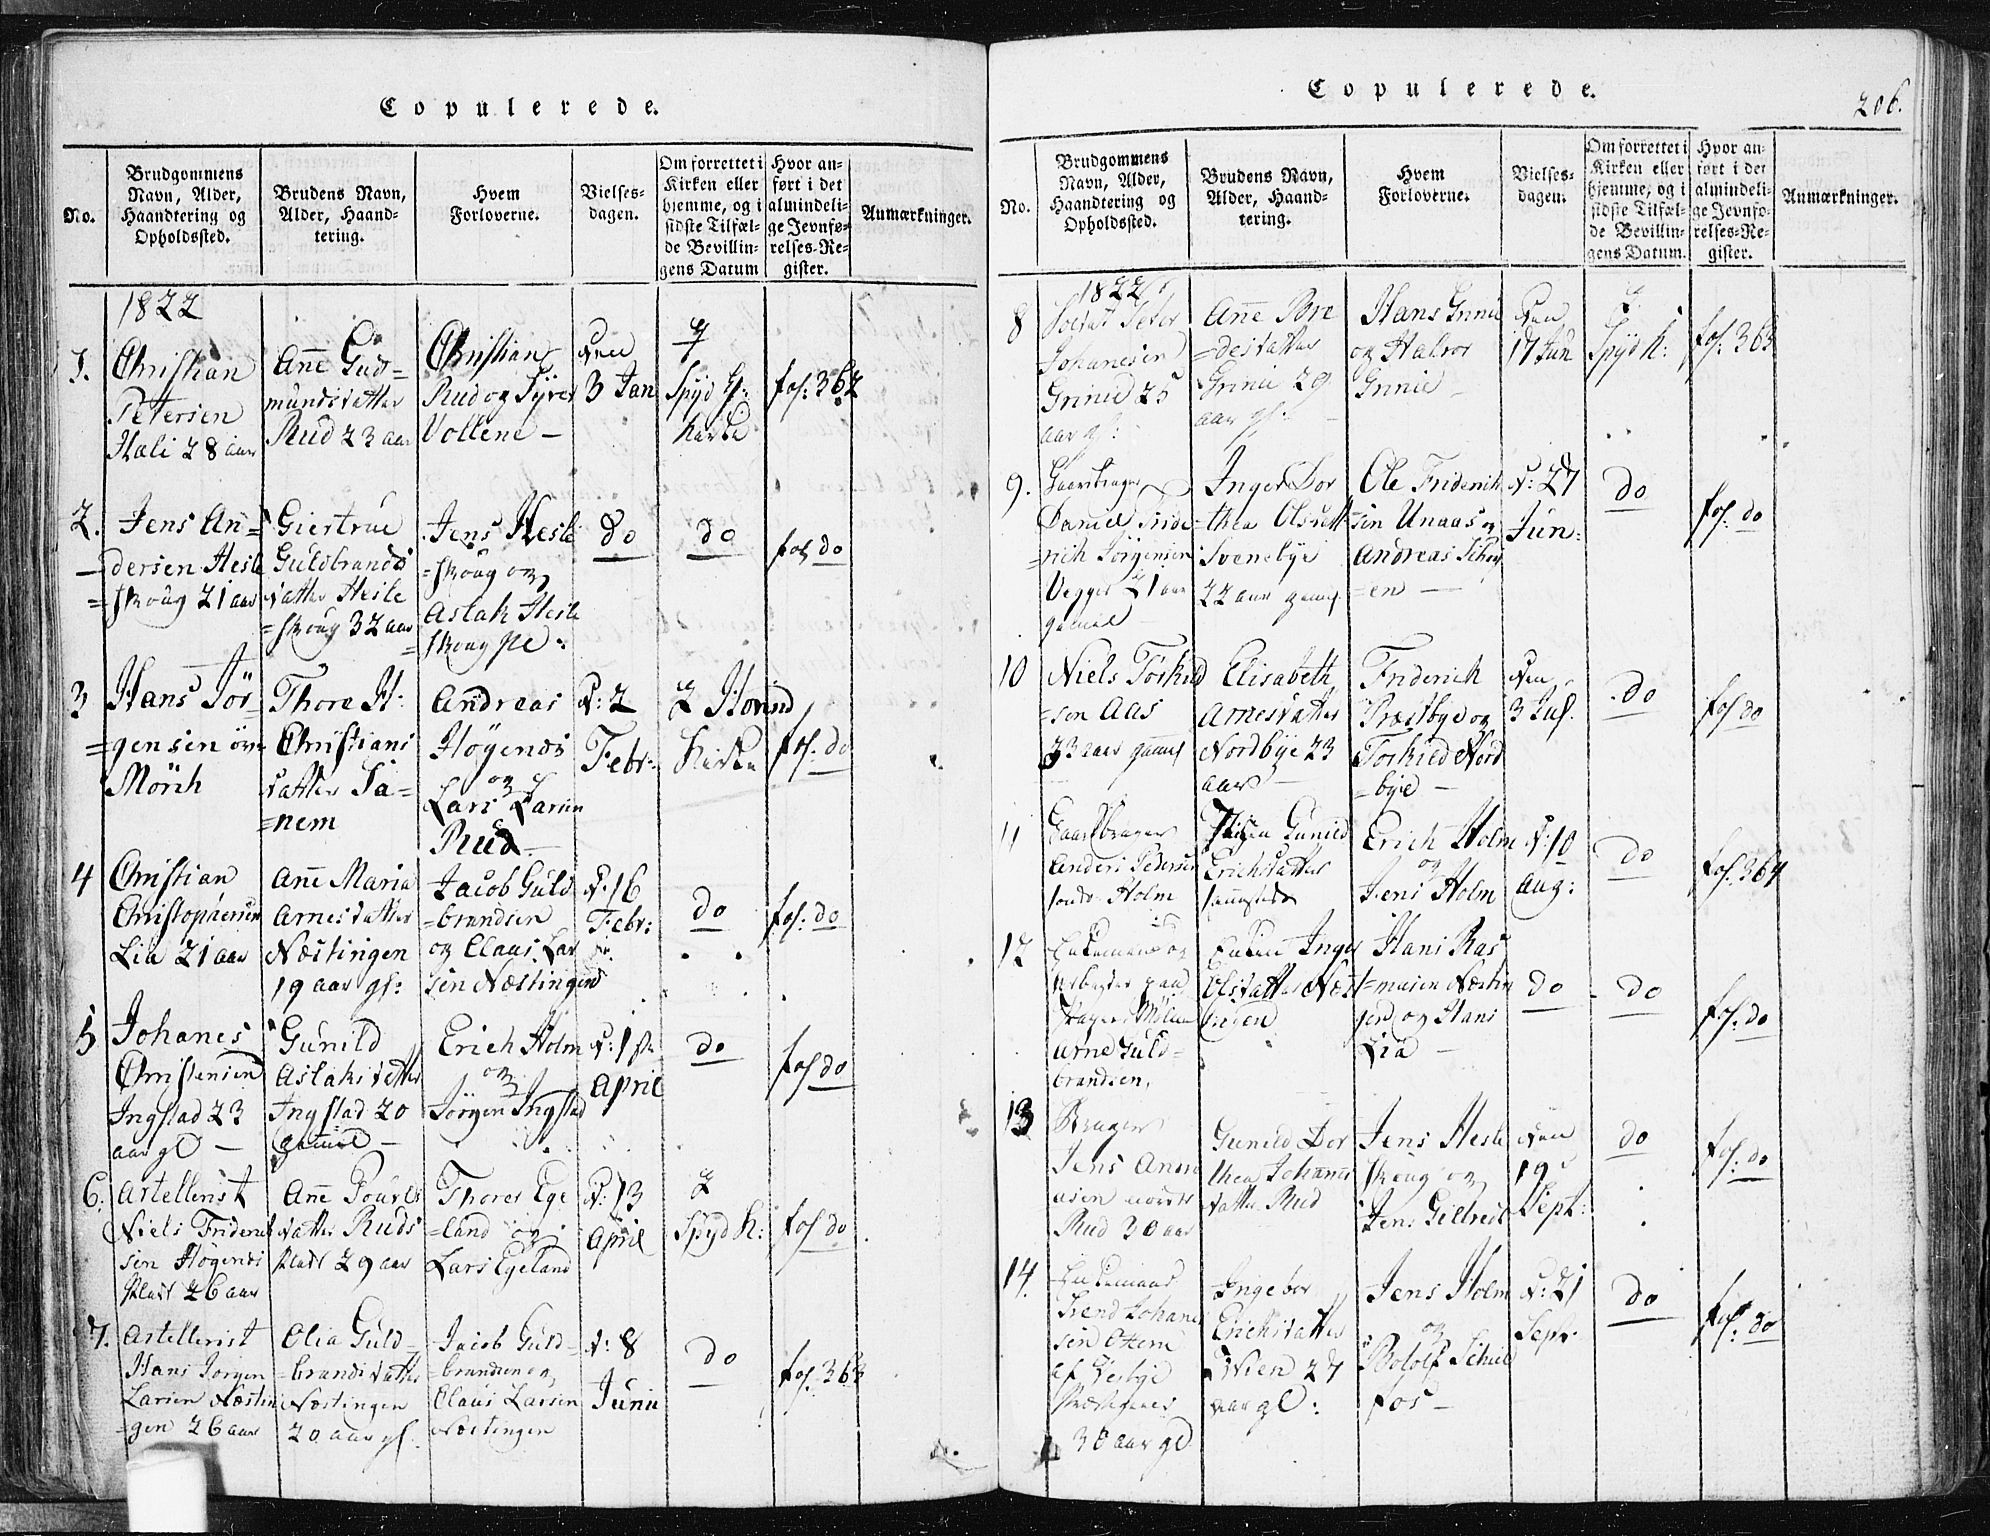 Copulerede.
No.
Brudgommens
Navn, Alder,
Haandtering og
Opholdssted.
Brudens Navn,
Alder, Haand-
tering.
Hvem
Forloverne.
Vielses-
dagen.
Om forrettet i
Kirken eller
hjemme, og i
sidste Tilfæl-
de Bevillin-
gens Datum
Hvor an-
ført i det
almindeli-
ge Jevnfø-
relses-Re-
gister.
Anmærkninger.
1822
1.
Christian
Petersen
Hali 28 aar
Anne Gud=
mundsdatter
Rud 23 aar
Christian
Rud og Syver
Vollene —
den
3 Jan
i
Spydb:
Kirke
fol: 362
2.
Jens An=
=dersen Hesle
=skoug 21 aar
Giertrue
Guldbrands
datter Hesle
=skoug 32 aar
Jens Hesle
=skoug og
Aslak Hesle
skoug
do
do
fol do
3
Hans Jør
=gensen
Mörch
Thore H:
Christians
datter Sa=
=nem
Andreas
Høgenes
og
Lars Larsen
Rud —
d: 2
Febr:
i Hovind
Kirke
fol: do
4
Christian
Christophersen
Lia 21 aar
Anne Maria
Arnesdatter
Næstingen
19 aar gl:
Jacob Guld
=brandsen
og Claus Lar
sen Næstingen
d: 16
Febr:
do
fol: do
5
Johanes
Christensen
Ingstad 23
aar gl —
Gunild
Aslaksdatter
Ingstad 20
gammel —
Erich Holm
og
Jørgen Ingstad
d: 1ste
April
do
fol do
6.
Artellerist
Niels Friderich
sen Høgenes
Plads 26 aar
Anne Pouels
datter Ruds
plads 29 aar
Thores Ege
=land og
Lars Egeland
d: 13
April
i
Spydb:
fol do
7.
Artellerist
Hans Jørgen
Larsen Næstin
=gen 26 aar
Olia Guld=
=brandsdatter
Næstingen
20 aar gl.
Jacob Guld=
brandsen og
Claus Larsen
Næstingen
d: 8
Junii
do
fol. 363
Copulerede.
206.
No.
Brudgommens
Navn, Alder,
Haandtering og
Opholdssted.
Brudens Navn,
Alder, Haand-
tering.
Hvem
Forloverne.
Vielses-
dagen.
Om forrettet i
Kirken eller
hjemme, og i
sidste Tilfæl-
de Bevillin-
gens Datum.
Hvor an-
ført i det
almindeli-
ge Jevnfø-
relses-Re-
gister.
Anmærkninger.
1822
8
Soldat Peter
Johanesen
Grinie 25
aar gl:
Anne Bre
=desdatter
Grinie 29
aar gl: —
Hans Grinie
og Halvor
Grinie —
den
17 Jun
i
Spydb:
fol: 363
9.
Gaardbruger
Daniel Fride
=rich Jørgensen
Vegger 21 aar
gammel —
Inger Dor
=thea Olsdatt
Svenebye
22 aar gamel
Ole Friderich
=sen Unaas og
Andreas
=en —
d: 27
Jun:
do
fol. do
10
Niels Torkild
=sen Aas
23 aar gamel
Elisabeth
Arnesdatter
Nordbye 23
aar —
Friderich
Præstbye og
Torkild Nord
=bye —
den
3 Jul.
do
fol do
11
Gaardbruger
Anders Pedersen
Holm
Gunild
Erichsdatter
Erich Holm
og
Jens Holm
d: 10
Aug:
do
fol. 364
12
Enkemand og
arbeider paa
Arne Guld=
brandsen,
Enken Inger
Olsdatter Næst
Hans Ras
=musen Næstin
gen og Hans
Lia —
do
do
fol. do
13
Bruger
Jens Andre
asen
Rud 30 aar
Gunild Dor
thea Johannes
datter Rud
Jens Hesle
skoug og
Jens
den
19
Sept:
do
fol: do
14.
Enkemand
Svend Johane
sen
af
Præstegield
30 aar gl
Ingebor
Erichsdatter
27
aar gl:
Jens Holm
og
fos —
d: 21
Sept:
do
fol. do